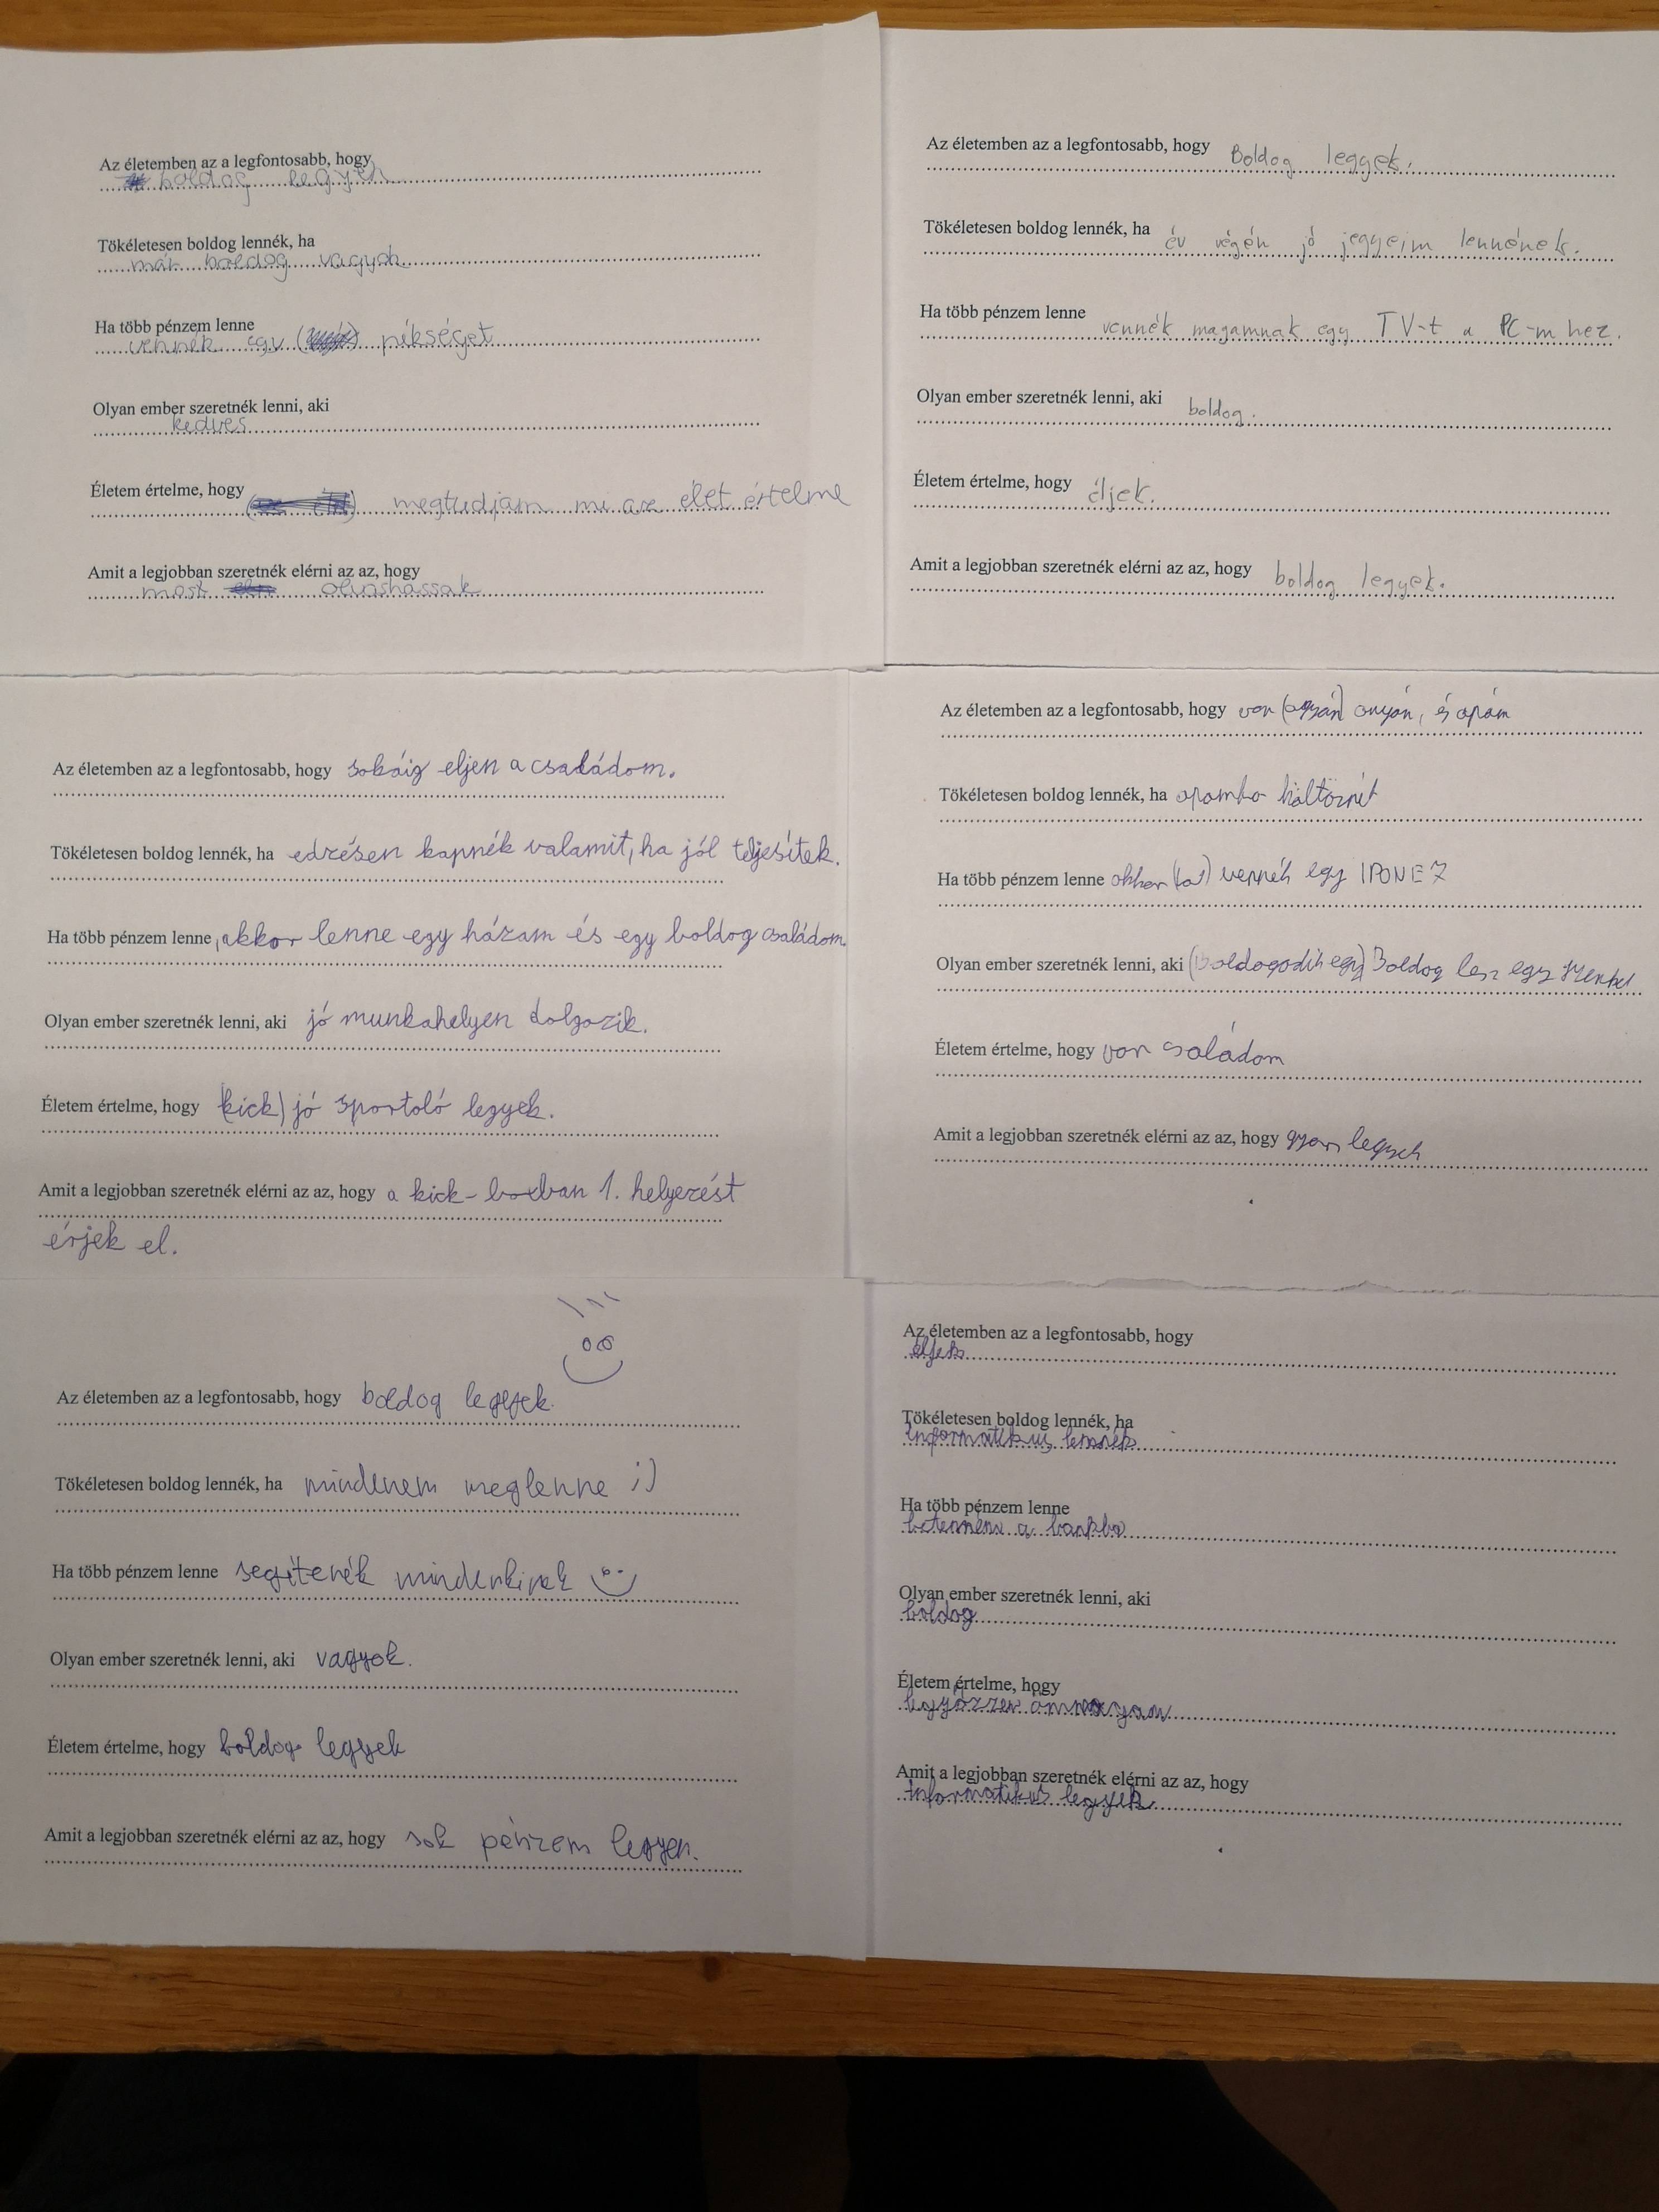 Az életemben az a legfontosabb, hogy
boldog legyek
Tökéletesen boldog lennék, ha
már boldog vagyok.
Ha több pénzem lenne
vennék egy pékséget
Olyan ember szeretnék lenni, aki
kedves
Életem értelme, hogy
megtudjam mi az élet értelme
Amit a legjobban szeretnék elérni az az, hogy
most olvashassak
Az életemben az a legfontosabb, hogy Boldog legyek.
Tökéletesen boldog lennék, ha év végén jó jegyeim lennének.
Ha több pénzem lenne vennék magamnak egy TV-t a PC-m hez.
Olyan ember szeretnék lenni, aki boldog.
Életem értelme, hogy éljek.
Amit a legjobban szeretnék elérni az az, hogy boldog legyek.
Az életemben az a legfontosabb, hogy sokáig eljen a családom.
Tökéletesen boldog lennék, ha edzésen kapnék valamit, ha jól teljesítek.
Ha több pénzem lenne, akkor lenne egy házam és egy boldog családom
Olyan ember szeretnék lenni, aki jó munkahelyen dolgozik.
Életem értelme, hogy (kick) jó sportoló legyek.
Amit a legjobban szeretnék elérni az az, hogy a kick-boxban 1. helyezést
érjek el.
Az életemben az a legfontosabb, hogy van anyám, és apám
Tökéletesen boldog lennék, ha
Ha több pénzem lenne vennék egy IPONE 7
Olyan ember szeretnék lenni, aki Boldog lesz egy
Életem értelme, hogy van saládom
Amit a legjobban szeretnék elérni az az, hogy legyek
Az életemben az a legfontosabb, hogy boldog legyek.
Tökéletesen boldog lennék, ha mindenem meglenne ;)
Ha több pénzem lenne segítenék mindenkinek
Olyan ember szeretnék lenni, aki vagyok.
Életem értelme, hogy boldog legyek
Amit a legjobban szeretnék elérni az az, hogy sok pénzem legyen.
Az életemben az a legfontosabb, hogy
éljek
Tökéletesen boldog lennék, ha
informatikus lennék
Ha több pénzem lenne
betenném a bankba
Olyan ember szeretnék lenni, aki
boldog
Életem értelme, hogy
legyőzzem önmagam
Amit a legjobban szeretnék elérni az az, hogy
informatikus legyek